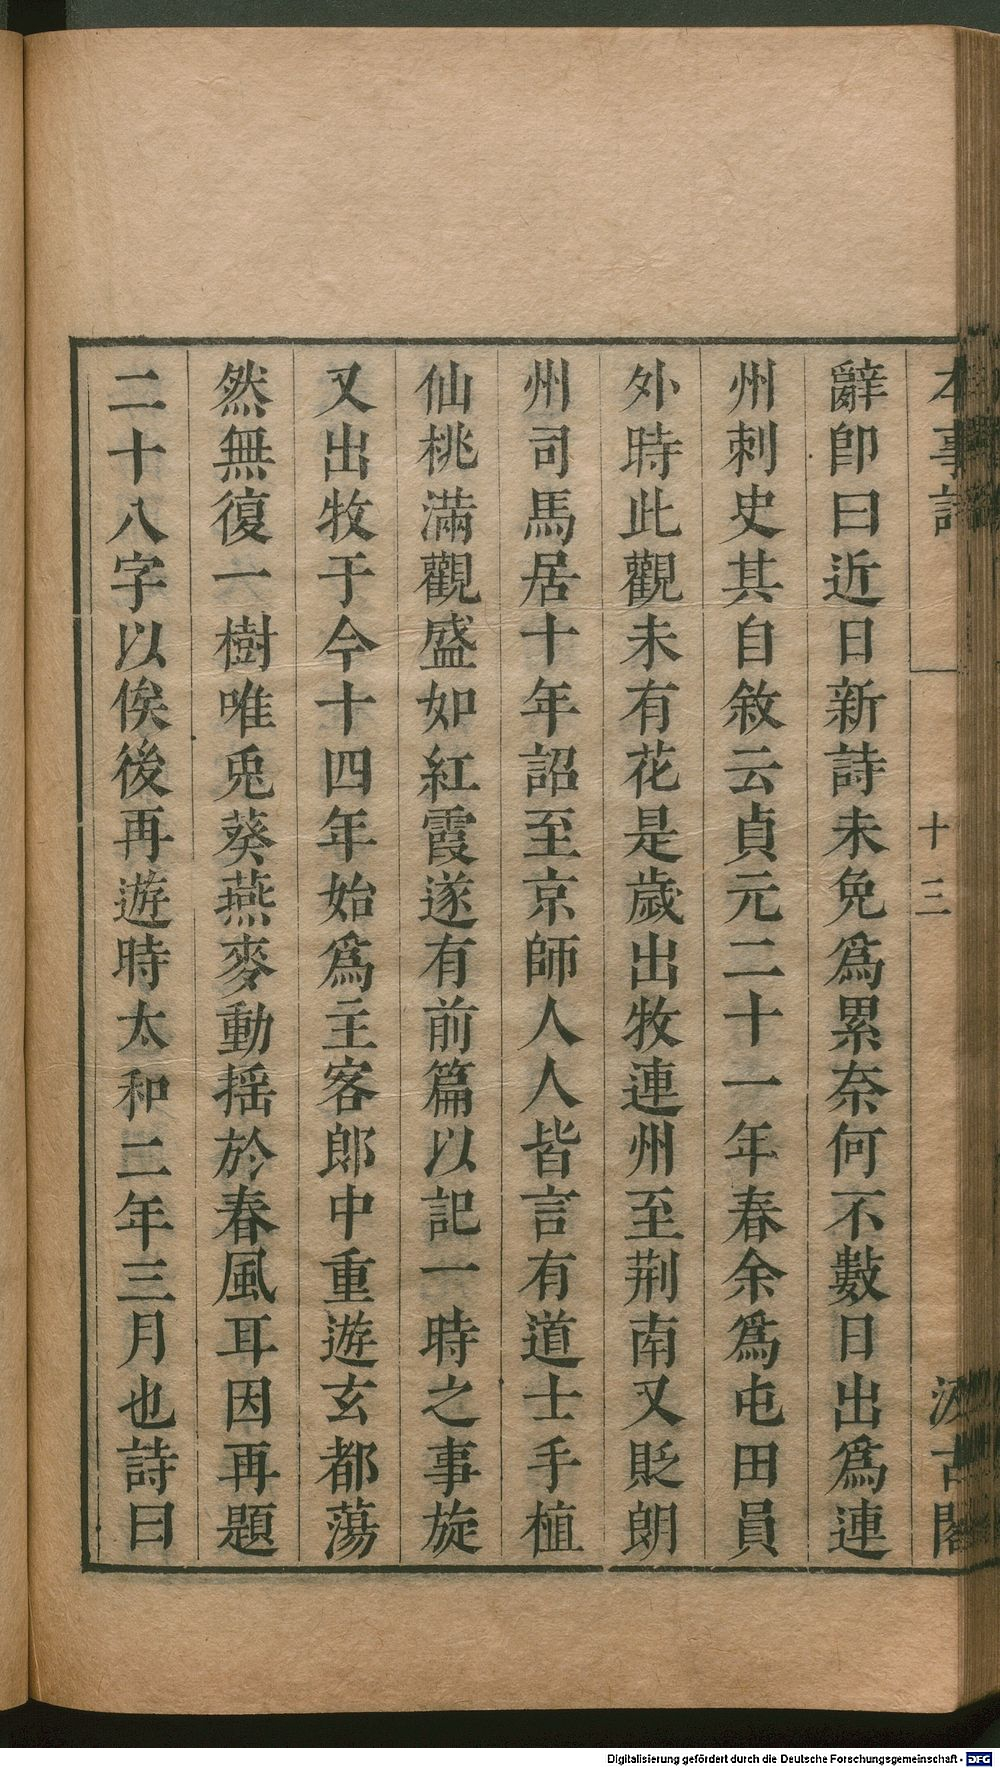 本事詩 十三 汲古閣
辭卽曰近日新詩未免爲累奈何不數日出爲連
州刺史其自敘云貞元二十一年春余爲屯田員
外時此觀未有花是歲出牧連州至荆南又貶朗
州司馬居十年詔至京師人人皆言有道士手植
仙桃滿觀盛如紅霞遂有前篇以記一時之事旋
又出牧于今十四年始爲主客郎中重遊玄都蕩
然無復一樹唯兎葵燕麥動揺於春風耳因再題
二十八字以俟後再遊時太和二年三月也詩曰
Digitalisierung gefördert durch die Deutsche Forschungsgemeinschaft - DFG